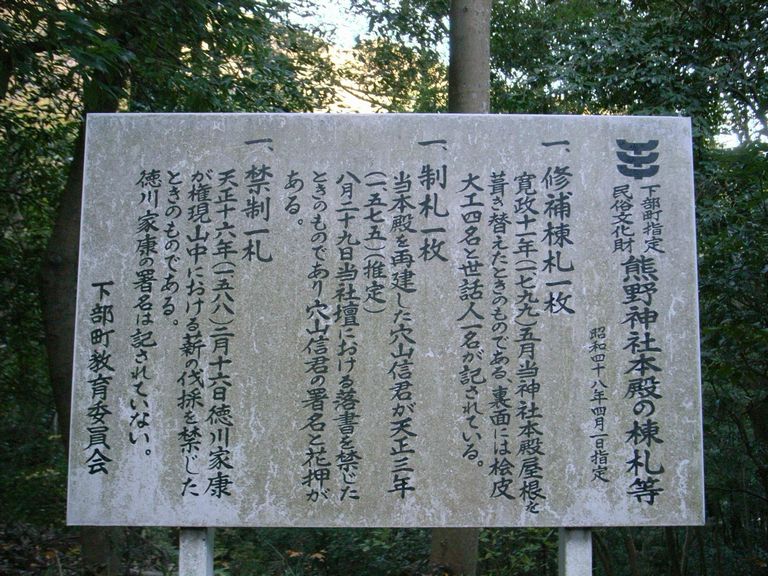 下部町指定
民俗文化財
熊野神社本殿の棟札等
昭和四十八年四月一日指定
一、修補棟札一枚
寛政十一年(一七九九)五月当神社本殿屋根を
葺き替えたときのものである、裏面には桧皮
大工四名と世話人一名が記されている。
一、制札一枚
当本殿を再建した穴山信君が天正三年
(一、五七五)(推定)
八月二十九日当社壇における落書を禁じた
ときのものであり穴山信君の署名と花押が
ある。
一、禁制一札
天正十六年(一五八八)二月十六日徳川家康
が権現山中における薪の伐採を禁じた
ときのものである。
徳川家康の署名は記されていない。
下部町教育委員会